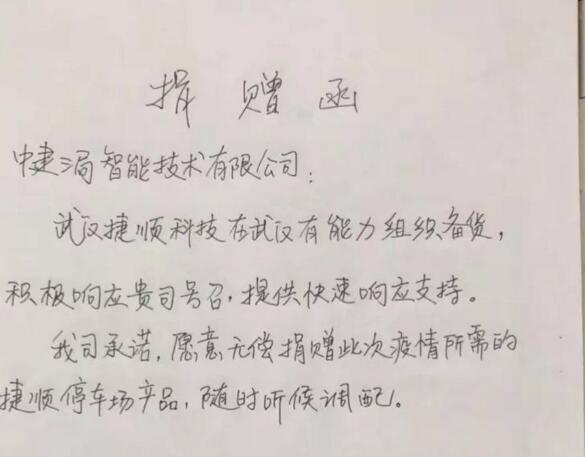 捐赠函
中建三局智能技术有限公司:
武汉捷顺科技在武汉有能力组织备货,
积极响应贵司号召,提供快速响应支持。
我司承诺,愿意无偿捐赠此次疫情所需的
捷顺停车场产品,随时听候调配。